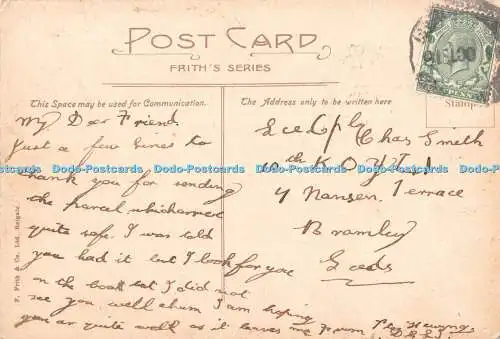 POST CARD
FRITH'S SERIES
This Space may be used for Communication.
The Address only to be written here
Stamp
My Dear Friend
Just a few lines to
thank you for sending
the parcel which arrived
quite safe. I was told
you had it but I look for you
on the boat but I did not
see you. well chum I am hoping
you ar quite well as it leaves me From
Chas Smith
10th K O Y L I
4 Nansen Terrace
Bramley
Leeds
F. Frith & Co. Ltd., Reigate
Dodo-Postcards Dodo-Postcards Dodo-Postcards Dodo-Postcards